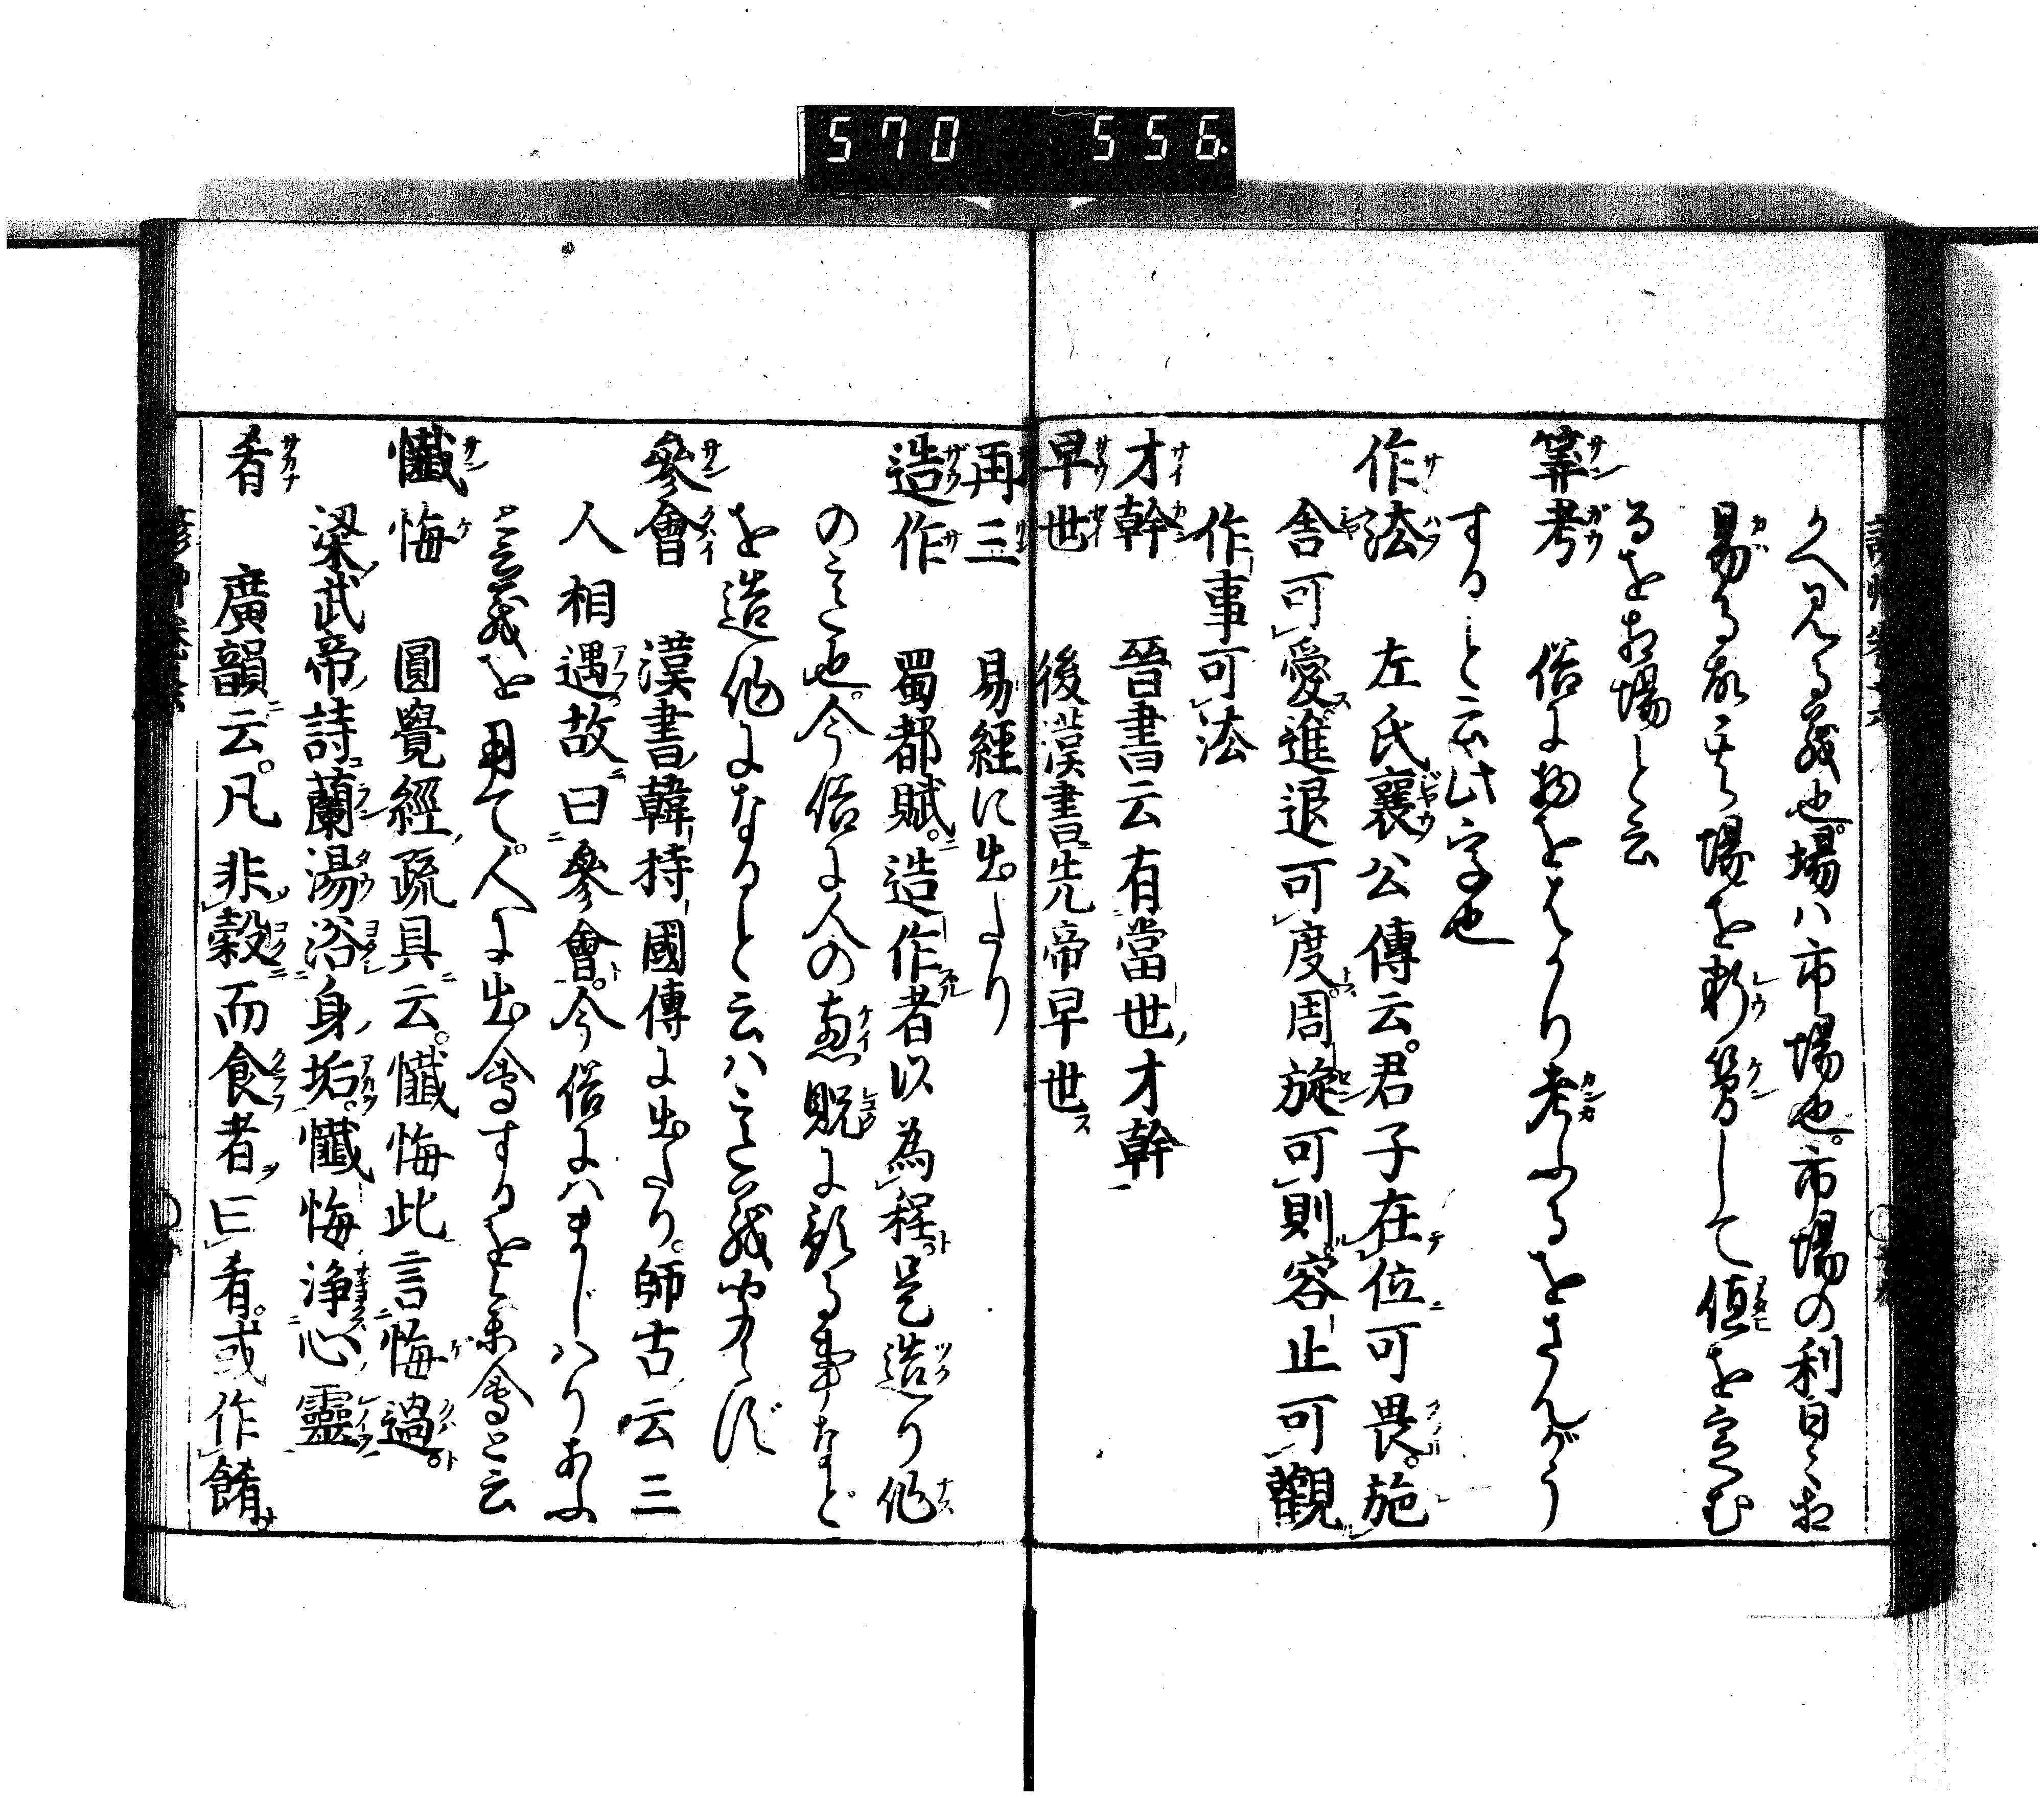 570 556
くへ見る義也。場ハ市場也。市場の利日々相
易る故其場を料簡して値を定む
るを相場と云
筭考 俗に物をはかり考ふるをさんがう
すると云此字也
作法 左氏襄公傳云。君子在位可畏。施
舎可愛。進退可度。周旋可則。容止可觀
作事可法
才幹 晉書云有當世才幹
早世 後漢書先帝早世
再三 易経に出たり
造作 蜀都賦。造作者以為程。是造り作
の意也。今俗に人の恵貺に預る事など
を造作になると云ハ意義
參會 漢書韓持國傳に出たり。師古云三
人相遇故曰參會。今俗にハまじハりあふ
意義を用て。人に出會するを參會と云
懺悔 圓覺經疏具云。懺悔此言悔過。
梁武帝詩蘭湯浴身垢。懺悔浄心靈
肴 廣韻云。凡非穀而食者曰肴。或作餚。